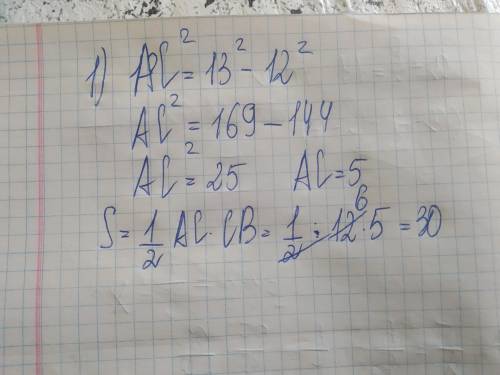 1) AC² = 13² - 12²
AC² = 169 - 144
AC² = 25 AC = 5
S = 1/2 AC · CB = 1/2 · 12 6 · 5 = 30